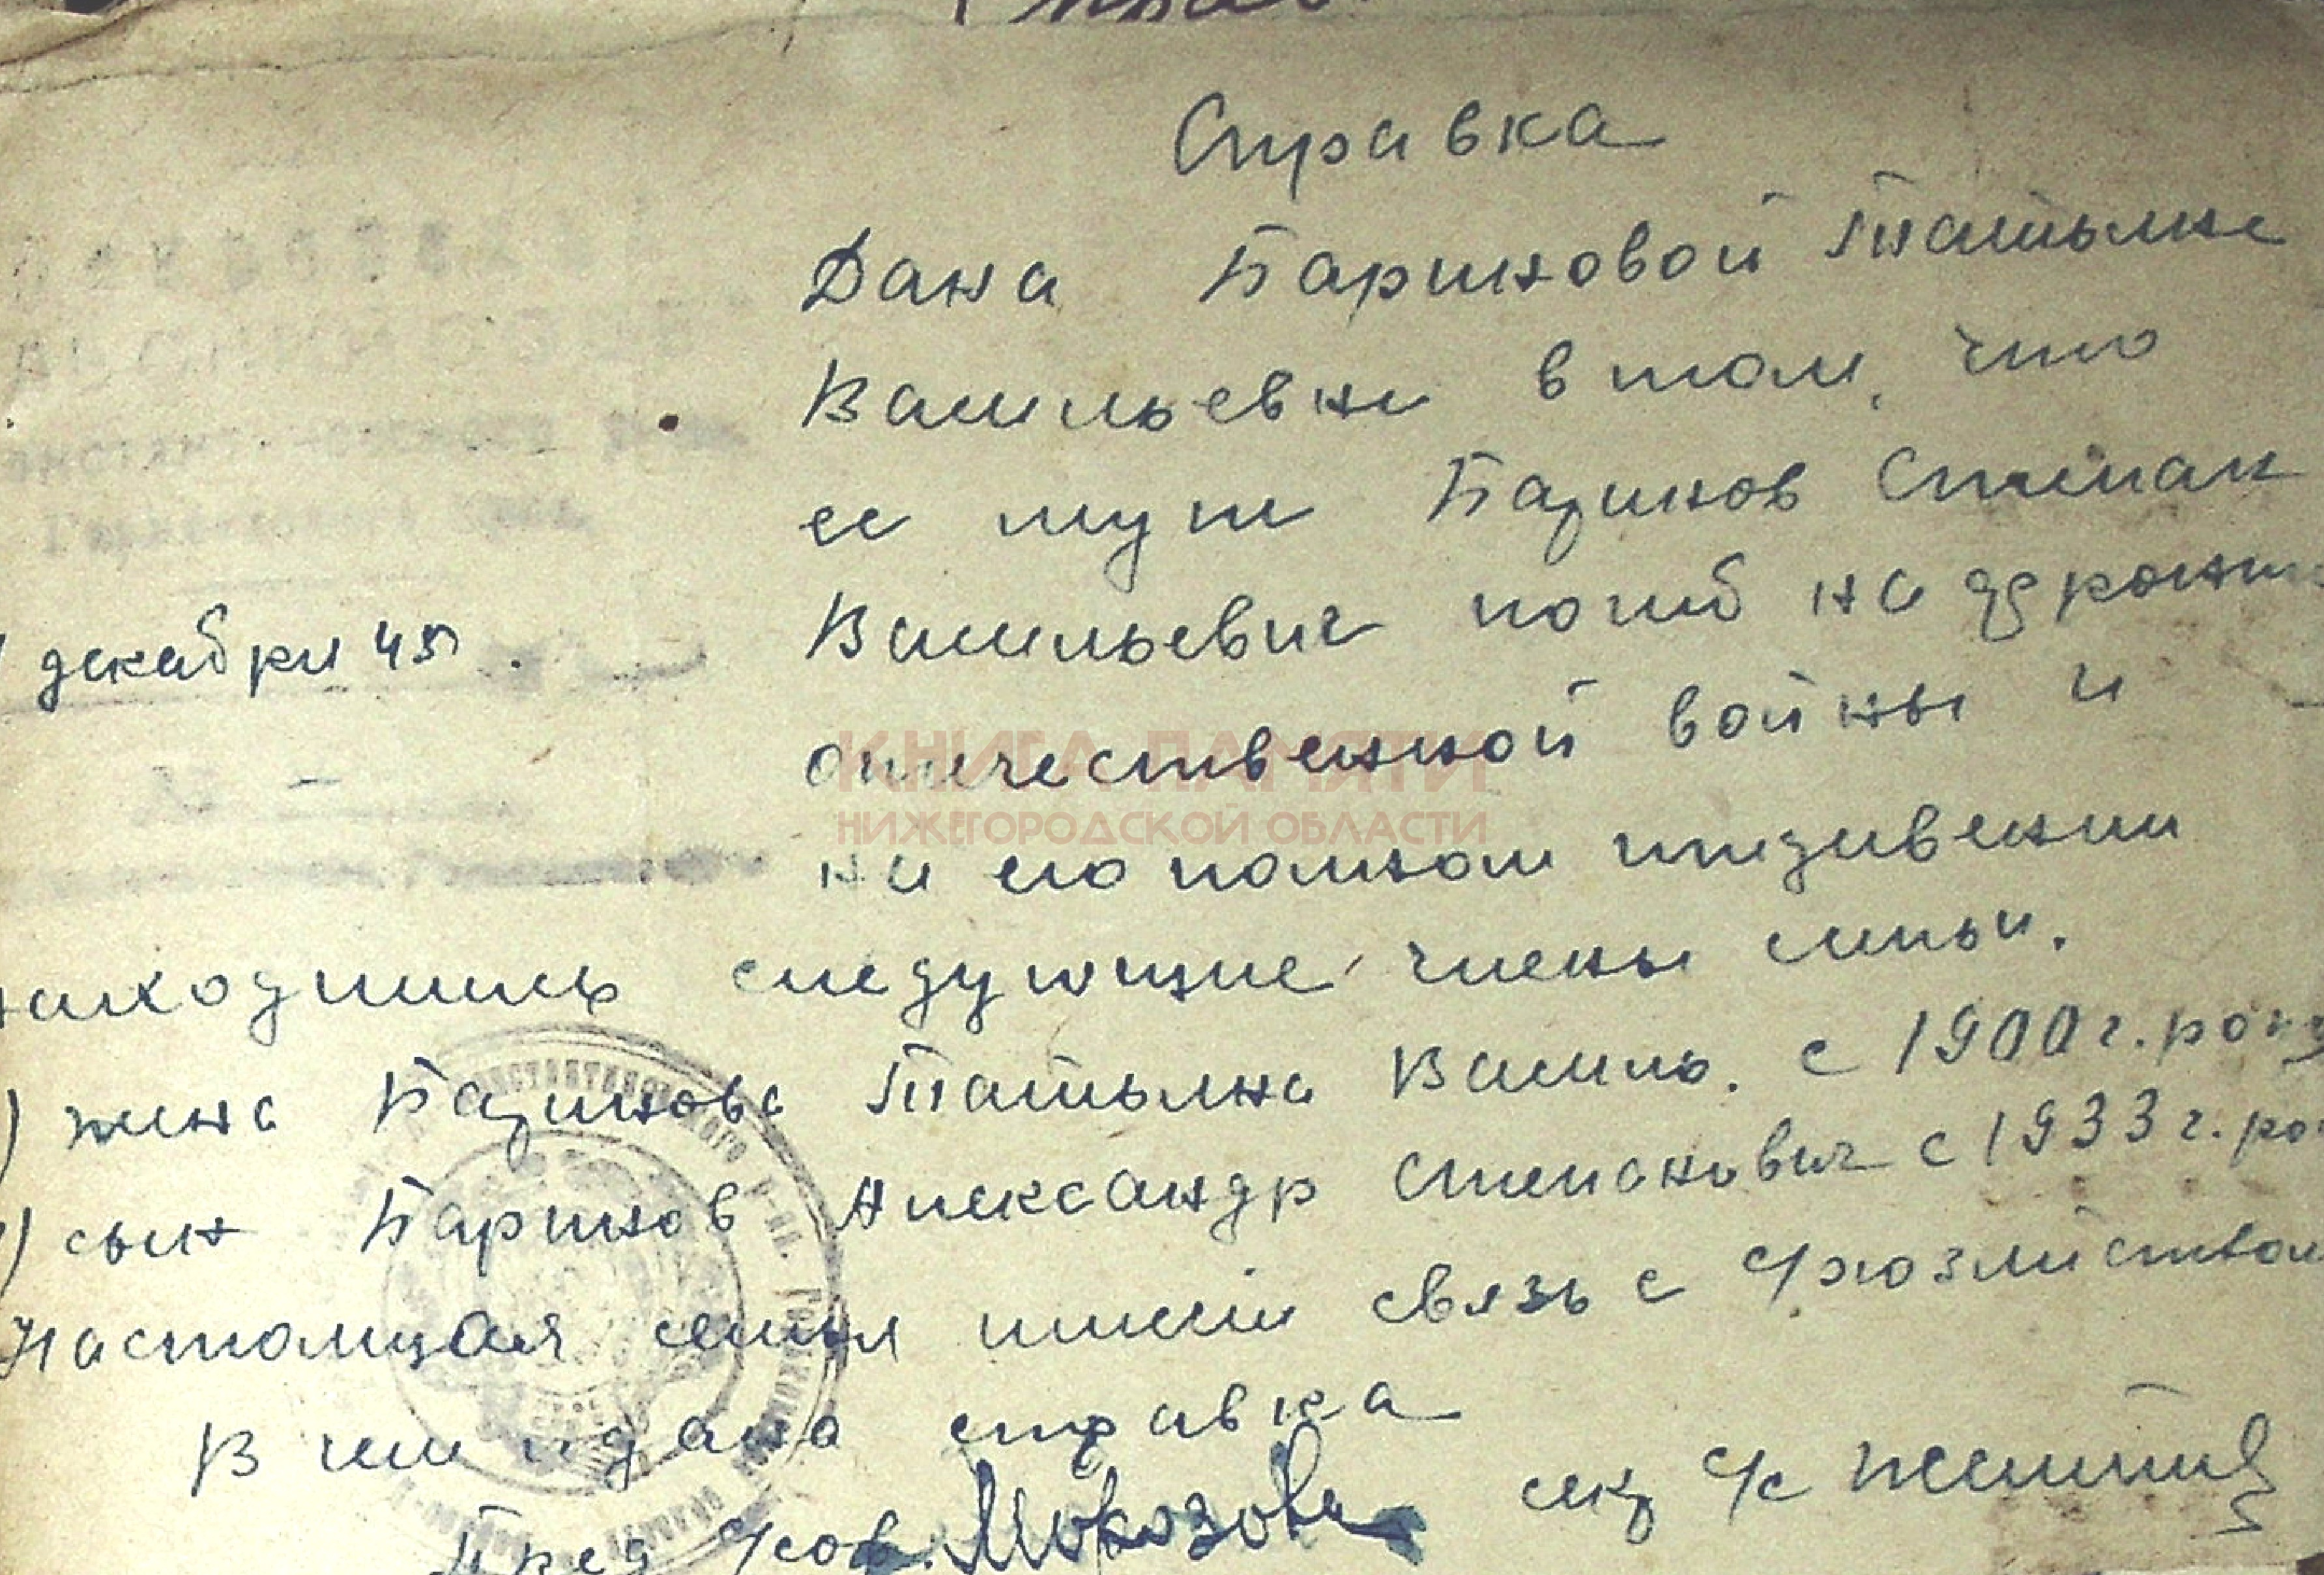 Справка
Дана Бариновой Татьяне
Васильевне в том, что
ее муж Баринов Степан
Васильевич погиб на фронте
отечественной войны и
КНИГА ПАМЯТИ
НИЖЕГОРОДСКОЙ ОБЛАСТИ
декабря 45
на его полном иждивении
находились следующие члены семьи.
) жена Баринова Татьяна Василь. с 1900 г. рожд
) сын Баринов Александр Степанович с 1933 г. ро
Настоящая семья имеет связь с с/хозяйством
В чем и дана справка
Пред с/сов. Морозова сек с/с